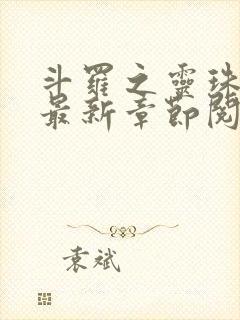 斗羅之靈珠
最新章節閱
袁斌